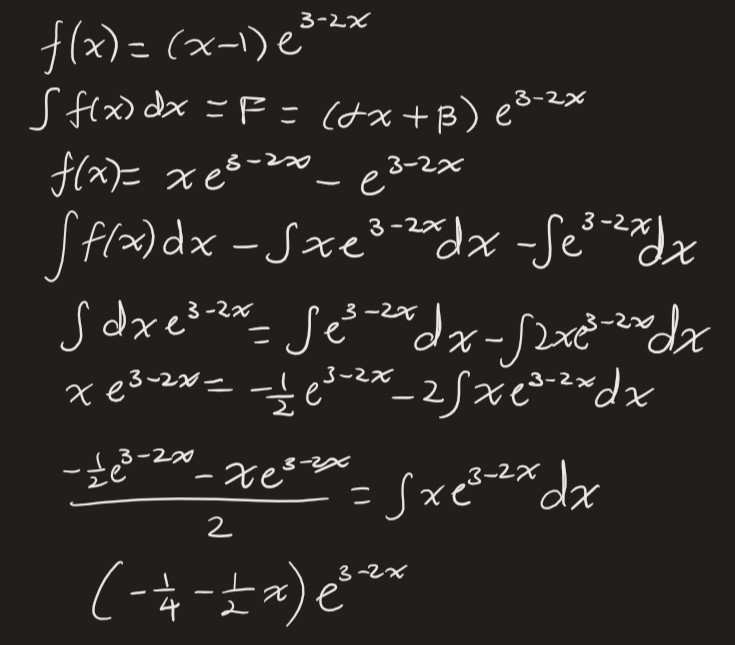 f(x) = (x-1)e^{3-2x}
∫ f(x) dx = F = (αx + β) e^{3-2x}
f(x) = x e^{3-2x} - e^{3-2x}
∫ f(x) dx - ∫ x e^{3-2x} dx - ∫ e^{3-2x} dx
∫ dx e^{3-2x} = ∫ e^{3-2x} dx - ∫ 2x e^{3-2x} dx
x e^{3-2x} = -\frac{1}{2} e^{3-2x} - 2 ∫ x e^{3-2x} dx
\frac{-\frac{1}{2} e^{3-2x} - x e^{3-2x}}{2} = ∫ x e^{3-2x} dx
(-\frac{1}{4} - \frac{1}{2} x) e^{3-2x}